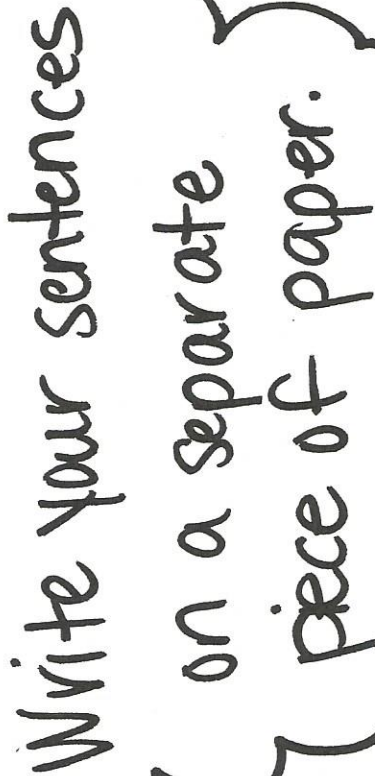 Write your sentences
on a separate
piece of paper.